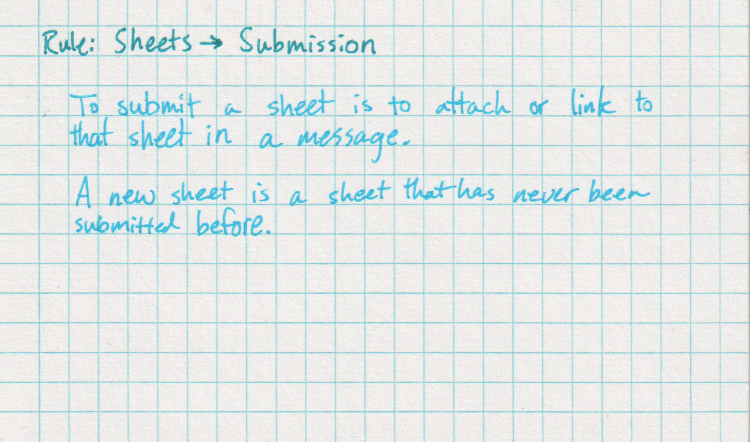 Rule: Sheets → Submission
To submit a sheet is to attach or link to
that sheet in a message.
A new sheet is a sheet that has never been
submitted before.